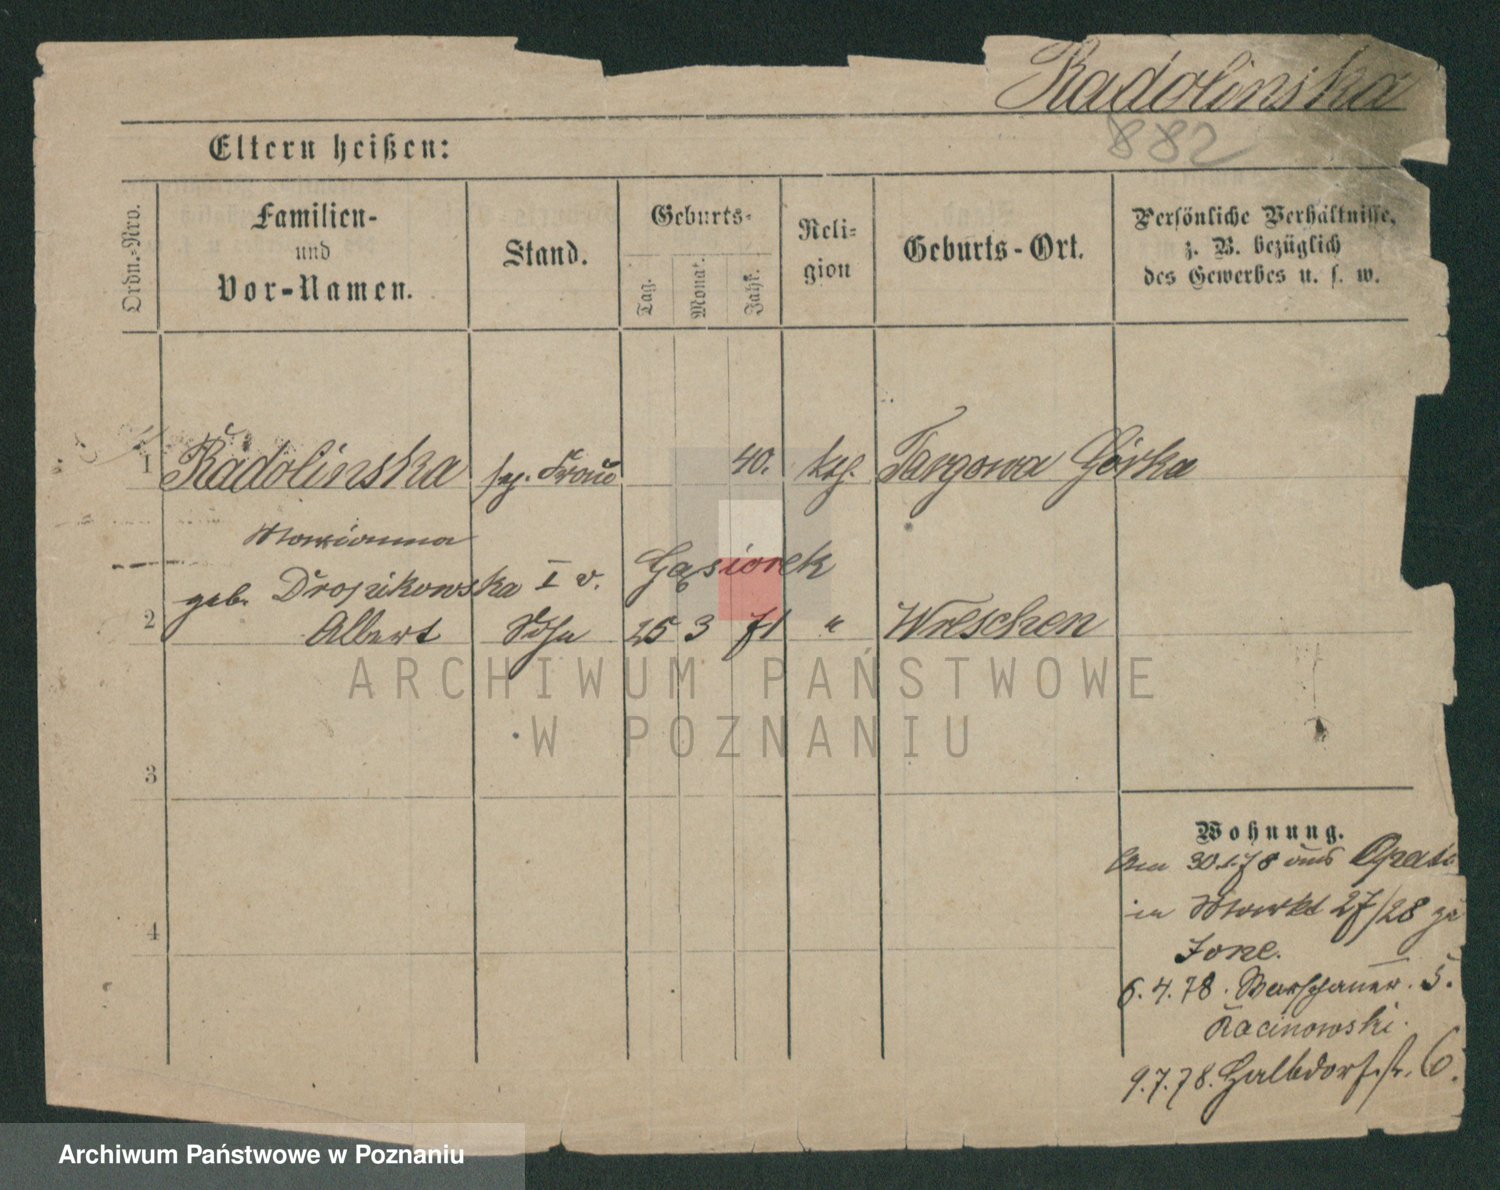 Radolinska
882
Eltern heißen:
Ordn.-Nro.
Familien-
und
Vor-Namen.
Stand.
Geburts-
Tag.
Monat.
Jahr.
Reli-
gion
Geburts-Ort.
Persönliche Verhältnisse,
z. B. bezüglich
des Gewerbes u. s. w.
1 Radolinska Frau 40. kth. Targowa Górka
Marianna
geb. Dropikowska I v. Gąsiorek
2 Albert Sohn 25 3 71 " Wreschen
3
4
Wohnung.
Am 30.1.78 aus
in Markt 27/28
6.4.78. Warschauer. 5.
Racinowski.
9.7.78. Halbdorfstr. 6.
ARCHIWUM PAŃSTWOWE
W POZNANIU
Archiwum Państwowe w Poznaniu